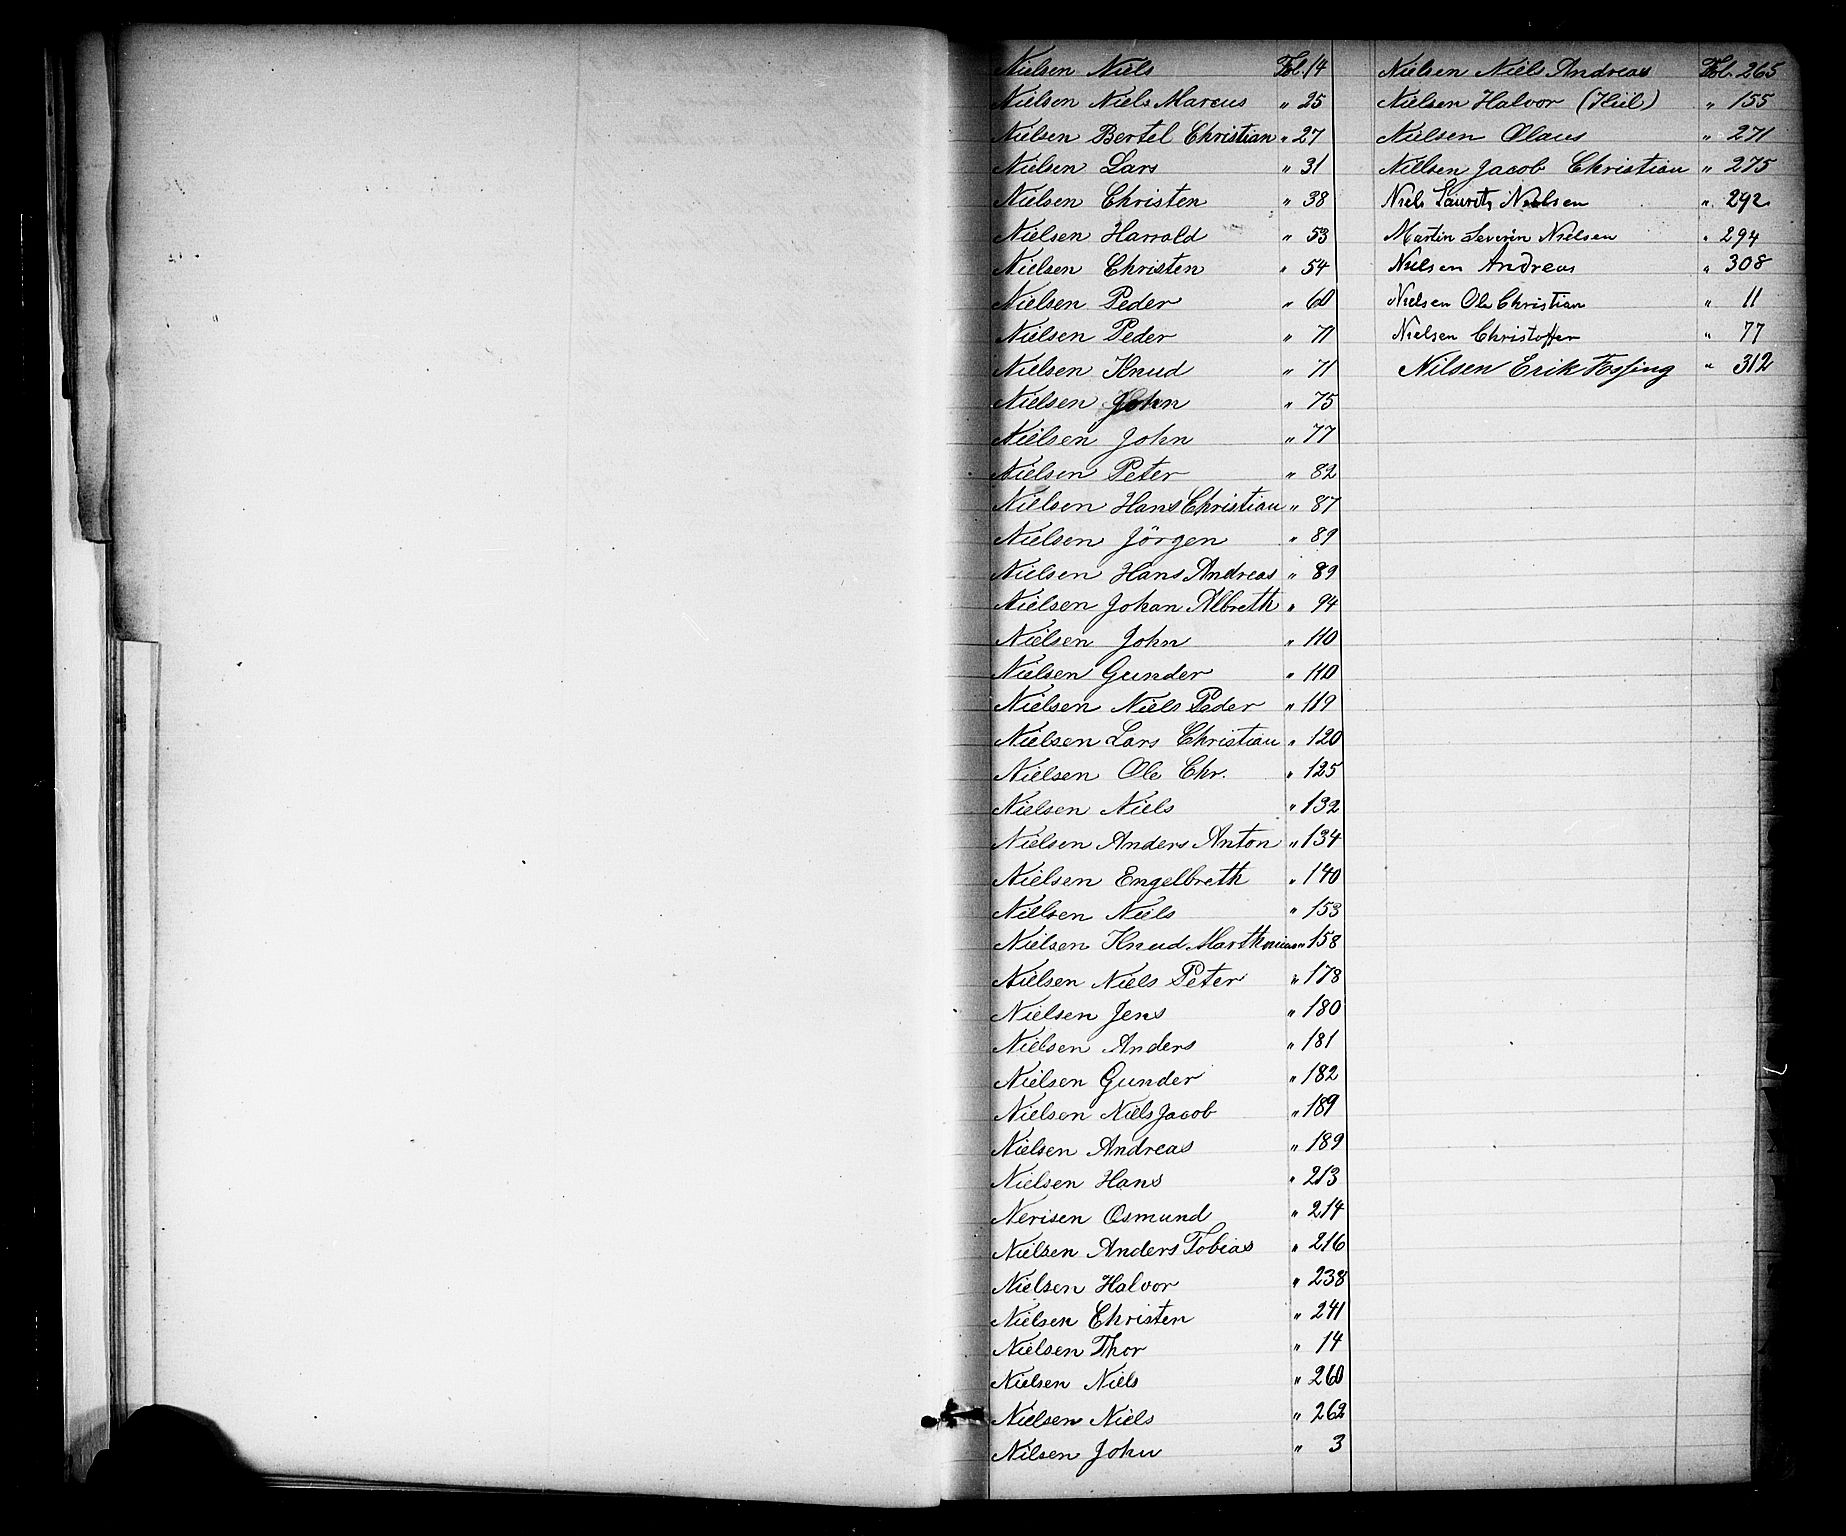 Nielsen Niels Fol. 14
Nielsen Niels Marcus " 25
Nielsen Bertel Christian " 27
Nielsen Lars " 31
Nielsen Christen " 38
Nielsen Harrald " 53
Nielsen Christen " 54
Nielsen Peder " 60
Nielsen Peder " 71
Nielsen Knud " 71
Nielsen John " 75
Nielsen John " 77
Nielsen Peter " 82
Nielsen Hans Christian " 87
Nielsen Jörgen " 89
Nielsen Hans Andreas " 89
Nielsen Johan Albreth " 94
Nielsen John " 110
Nielsen Gunder " 110
Nielsen Niels Peder " 119
Nielsen Lars Christian " 120
Nielsen Ole Chr. " 125
Nielsen Niels " 132
Nielsen Anders Anton " 134
Nielsen Engelbreth " 140
Nielsen Niels " 153
Nielsen Knud Marthinius " 158
Nielsen Niels Peter " 178
Nielsen Jens " 180
Nielsen Anders " 181
Nielsen Gunder " 182
Nielsen Niels Jacob " 189
Nielsen Andreas " 189
Nielsen Hans " 213
Nerisen Osmund " 214
Nielsen Anders Tobias " 216
Nielsen Halvor " 238
Nielsen Christen " 241
Nielsen Thor " 14
Nielsen Niels " 260
Nielsen Niels " 262
Nilsen John " 3
Nielsen Niels Andreas Fol. 265
Nielsen Halvor (Kiil) " 155
Nielsen Olaus " 271
Nielsen Jacob Christian " 275
Niels Laurits Nielsen " 292
Martin Severin Nielsen " 294
Nielsen Andreas " 308
Nielsen Ole Christian " 11
Nielsen Christoffer " 77
Nilsen Erik Fossing " 312